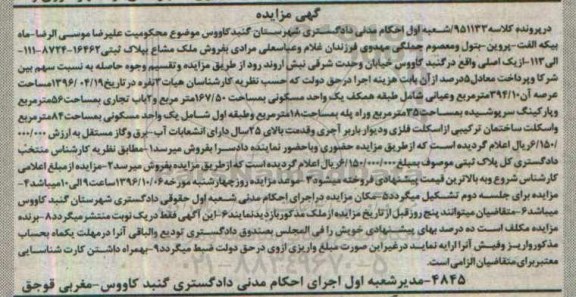 آگهی مزایده
در پرونده کلاسه ۹۵۱۱۳۳/شعبه اول احکام مدنی دادگستری شهرستان گنبدکاووس موضوع محکومیت علیرضا موسی الرضا-ماه
بیکه الفت-پروین-بتول ومعصوم جملگی مهدوی فرزندان غلام وعباسعلی مرادی بفروش ملک مشاع بپلاک ثبتی ۱۶۴۶۲-۸۷۲۴-۱۱۱
الی ۱۱۳-ازیک اصلی واقع در گنبد کاووس خیابان وحدت شرقی نبش اروند رود از طریق مزایده وتقسیم وجوه حاصله به نسبت سهم بین
شرکا وپرداخت معادل ۵درصد از آن بابت هزینه اجرا در حق دولت که حسب نظریه کارشناسان هیات ۳نفره در تاریخ ۱۳۹۶/۰۴/۱۹ مساحت
عرصه آن ۳۹۴/۱۰ مترمربع وعیانی شامل طبقه همکف یک واحد مسکونی بمساحت ۱۶۷/۵۰ متر مربع و۲باب تجاری بمساحت ۵۶مترمربع
وپارکینگ سرپوشیده بمساحت ۳۵مترمربع وراه پله بمساحت ۱۸مترمربع وطبقه اول شامل یک واحد مسکونی بمساحت ۸۴مترمربع
واسکلت ساختمان ترکیبی از اسکلت فلزی ودیوار باربر آجری وقدمت بالای ۲۵سال دارای انشعابات آب-برق وگاز مستقل به ارزش ۰۰۰/۰۰۰
/۶/۱۵۰ریال اعلام گردیده است که از طریق مزایده حضوری وباحضور نماینده دادسرا بفروش میرسد۱-مطابق نظریه کارشناس منتخب
دادگستری کل پلاک ثبتی موصوف بمبلغ ۶/۱۵۰/۰۰۰/۰۰۰ریال اعلام گردیده است که از طریق مزایده بفروش میرسد۲-مزایده از مبلغ اعلامی
کارشناس شروع وبه بالاترین قیمت پیشنهادی فروخته میشود۳-موعد مزایده روز چهارشنبه مورخه ۱۳۹۶/۱۰/۰۶ساعت ۹الی ۱۰میباشد۴-
مزایده برای جلسه دوم تشکیل میگردد۵-مکان مزایده در اجرای احکام مدنی شعبه اول حقوقی دادگستری شهرستان گنبد کاووس
میباشد۶-متقاضیان میتوانند پنج روز قبل از تاریخ مزایده از ملک مذکور بازدید نمایند۷-این آگهی فقط در یک نوبت منتشر میگردد۸-برنده
مزایده مکلف است ده درصد بهای پیشنهادی خویش را فی المجلس بصندوق دادگستری تودیع والباقی آنرا در مهلت یکماه بحساب
مذکور واریز وفیش آنرا ارایه نماید در غیر این صورت مبلغ واریزی ازوی در حق دولت ضبط میگردد۹-بهمراه داشتن کارت شناسایی
معتبر برای متقاضیان الزامی است.
۴۸۴۵-مدیر شعبه اول اجرای احکام مدنی دادگستری گنبد کاووس-مغربی قوجق
۰۲۱-۸۸۳۴۹۶۷۰-۵